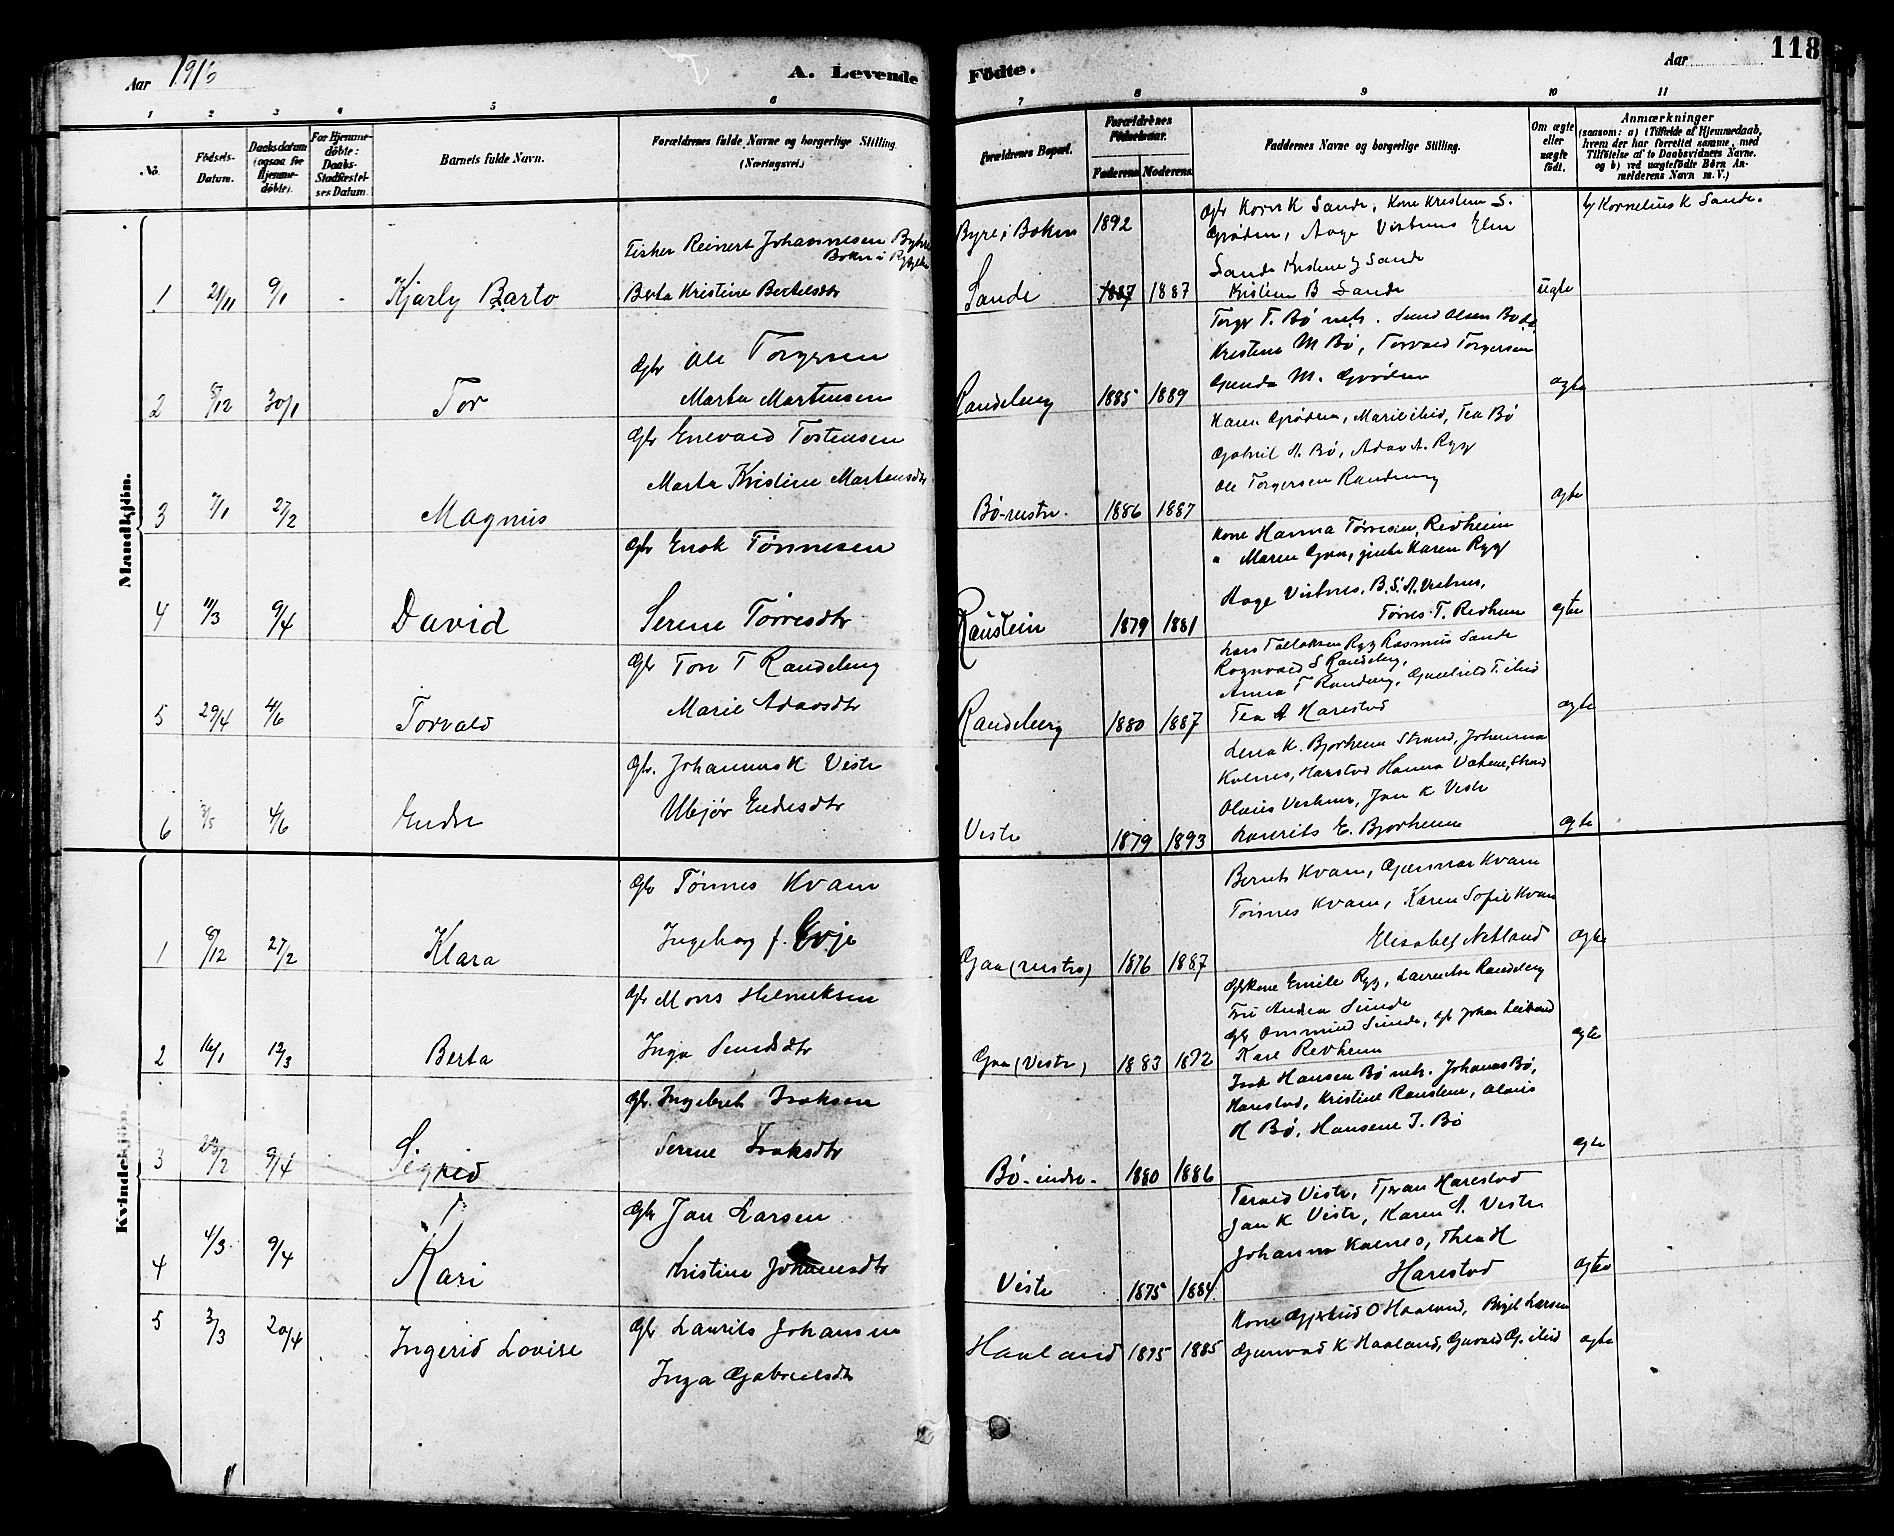 Aar 1916
A. Levende Fødte.
Aar
118
1 2 3 4 5 6 7 8 9 10 11
No.
Fødsels-Datum.
Daabsdatum (ogsaa for Hjemme-døbte).
For Hjemme-døbte: Daabs-Stadfæstel-ses Datum.
Barnets fulde Navn.
Forældrenes fulde Navne og borgerlige Stilling (Næringsvei.)
Forældrenes Bopæl.
Forældrenes Fødselsaar.
Faderens Moderens
Faddernes Navne og borgerlige Stilling.
Om ægte eller uægte født.
Anmærkninger
(saasom: a) i Tilfælde af Hjemmedaab, hvem der har forrettet samme, med Tilføielse af to Daabsvidners Navne, og b) ved uægtefødte Børn Anmelderens Navn m. V.)
Mandkjøn.
1 21/11 9/1 - Kjarly Barto
Fisker Reinert Johannesen Byhre
Bokn i Ryfylke
Berta Kristine Bertelsdtr
Byre i Bokn 1892
Sande 1887 1887
Gbr Korn K Sande, Kone Kristine S.
Grødem, Aage Vistnes Elen
Sande Kristine J Sande
Kristine B Sande
uægte
v/ Kornelius K Sande.
2 8/12 30/1 Tor
Gbr Ole Torgersen
Marta Martensen
Randeberg 1885 1889
Torger T. Bø netr. Sund Olsen Bø
Kristine M Bø, Torvald Torgersen
Gunda M. Grødem
ægte
3 7/1 27/2 Magnus
Gbr Enevald Tostensen
Marta Kristine Martensdtr
Bø-nestre. 1886 1887
Karen Grødem, Marie ibid, Tea Bø
Gabriel A. Bø, Adav A. Rygg
Ole Torgersen Randeberg
ægte
4 11/3 9/4 David
Gbr Enok Tønnesen
Serene Tørresdtr
Raustein 1879 1881
Kone Hanna Tørresen, Revheim
" Maren Gaa, pike Karen Rygg
Aage Vistnes, B.S.A. Vistnes,
Tørres T. Revheim
ægte
5 29/4 4/6 Torvald
Gbr Tore T Randeberg
Marie Adavsdtr
Randeberg 1880 1887
Lars Tollaksen Rygg Rasmus Sande
Rognvald S Randeberg,
Anna T Randeberg, Gunhild T. ibid
Tea A Harestad
ægte
6 3/5 4/6 Endre
Gbr. Johannes K Viste
Ubjør Endresdtr
Viste 1879 1893
Lena K. Bjorheim Strand, Johanna
Kvernes, Harestad Hanna Vatne, Strand
Olaus Vistnes, Jan K Viste
Laurits E. Bjorheim
ægte
Kvindekjøn.
1 8/12 27/2 Klara
Gbr Tønnes Kvam
Ingeborg f. Goje
Gaa (nestre) 1876 1887
Bernt Kvam, Gunnvor Kvam
Tønnes Kvam, Karen Sofie Kvam
Elisabeth Netland
ægte
2 16/1 12/3 Berta
Gbr Mons Helmiksen
Inga Sundsdtr
Gaa (Vestre) 1883 1872
Gbrkone Emilie Rygg, Laurentse Randeberg
Fru Andrea Sunde
Gbr Ommund Sunde, Gbr Johan
Karl Revheim
ægte
3 23/2 9/4 Sigrid
Gbr. Ingebret Isaksen
Serine Isaksdtr
Bø-indre- 1880 1886
Isak Hansen Bø netr. Johannes Bø,
Harestad, Kristine Raustein, Olaus
H Bø, Hansene I. Bø
ægte
4 4/3 9/4 Kari
Gbr Jan Larsen
Kristine Johannesdtr
Viste 1875 1884
Torvald Viste, Tjeran Harestad
Jan K Viste, Karen A. Viste
Johanna Kvernes, Thea H
Harestad
ægte
5 3/3 20/4 Ingerid Lovise
Gbr Laurits Johansen
Inga Gabrielsdtr
Haaland 1875 1885
Kone Gjertrud O Haaland, Birgit Larsen
Gunvald K Haaland, Gunvald G. ibid
ægte